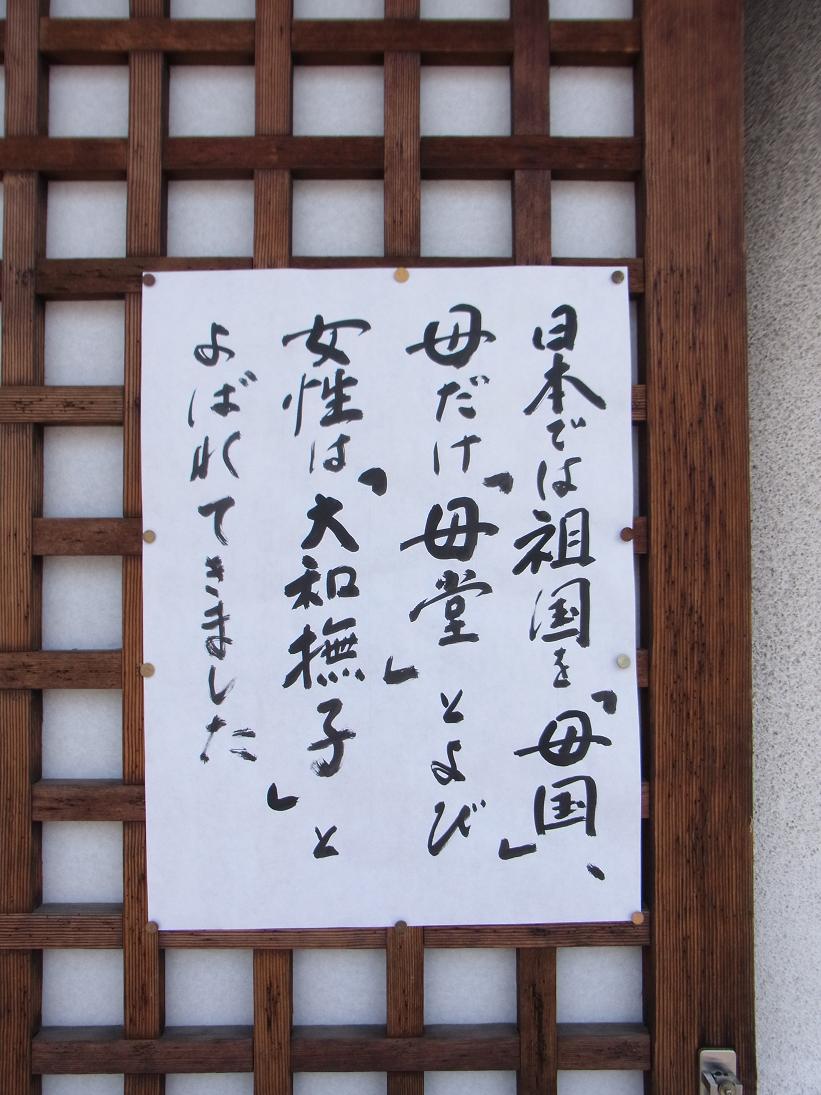 日本では祖国を「母国」、
母だけ「母堂」とよび
女性は「大和撫子」と
よばれてきました